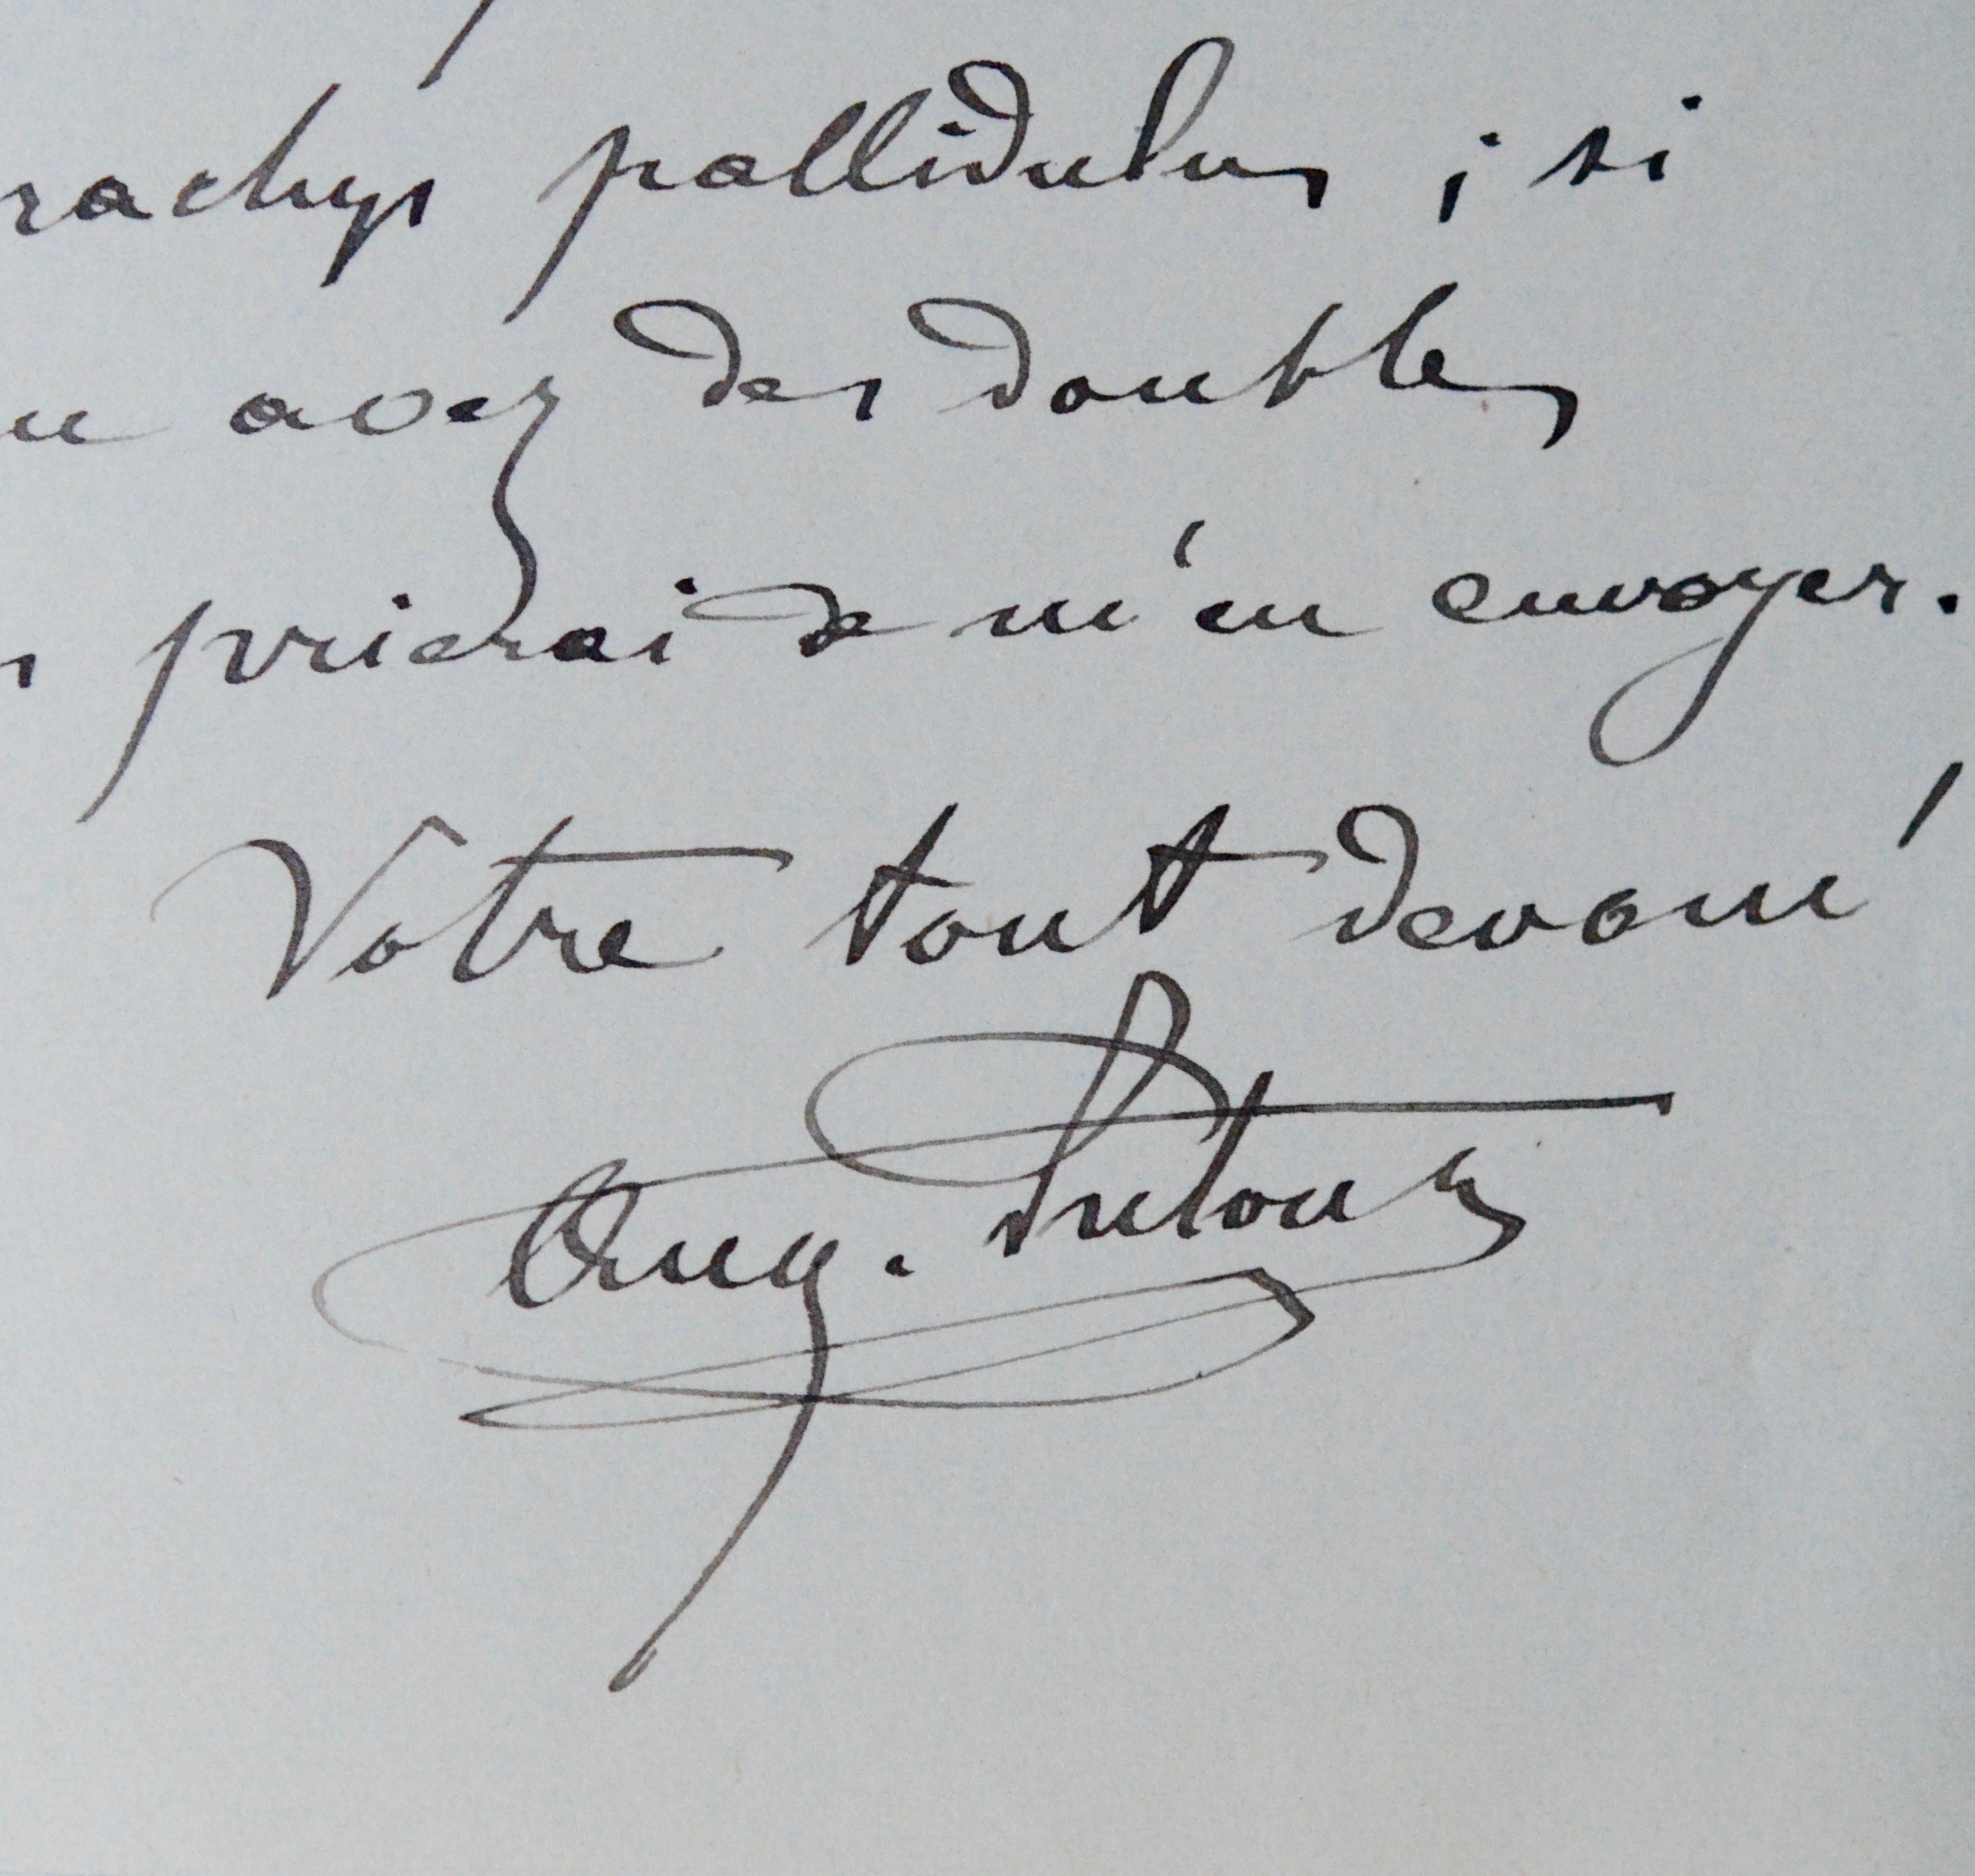 rachys pallidulus ; si
en avez des doubles
s prierai de m'en envoyer.
Votre tout dévoué
Aug. Dutour